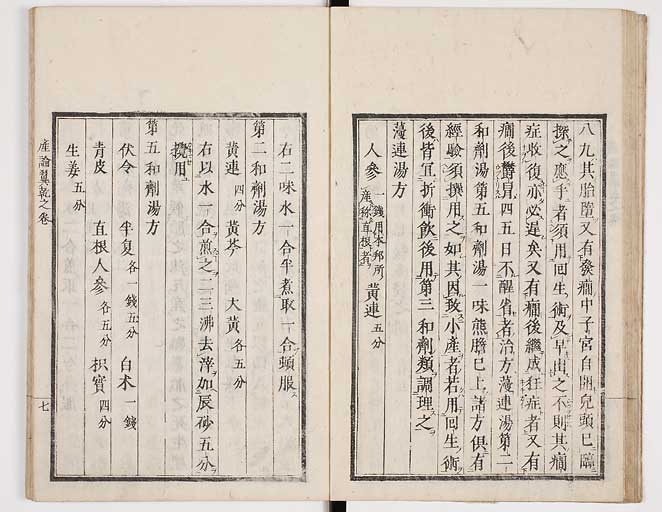 八九其胎墮又有發癇中子宮自開兒頭已臨
探之應乎者須用回生術及早出之不則其癇
症收復亦必遅矣又有癇後繼成狂症者又有
癇後鬱冒四五日不醒省者治方薓連湯第二
和劑湯第五和劑湯一味熊膽已上諸方俱有
經驗須撰用之如其因致小產者若用回生術
後皆宜折衝飲後用第三和劑類調理之
薓連湯方
人參 一錢用本邦所產称直根者 黄連 五分
右二味水一合半煮取一合頓服
第二和劑湯方
黄連 四分 黄芩 大黄 各五分
右以水一合煎之二三沸去滓加辰砂五分
攪用
第五和劑湯方
伏令 半夏 各一錢五分 白朮 一錢
青皮 直根人參 各五分 枳實 四分
生姜 五分
産論翼乾之卷 七